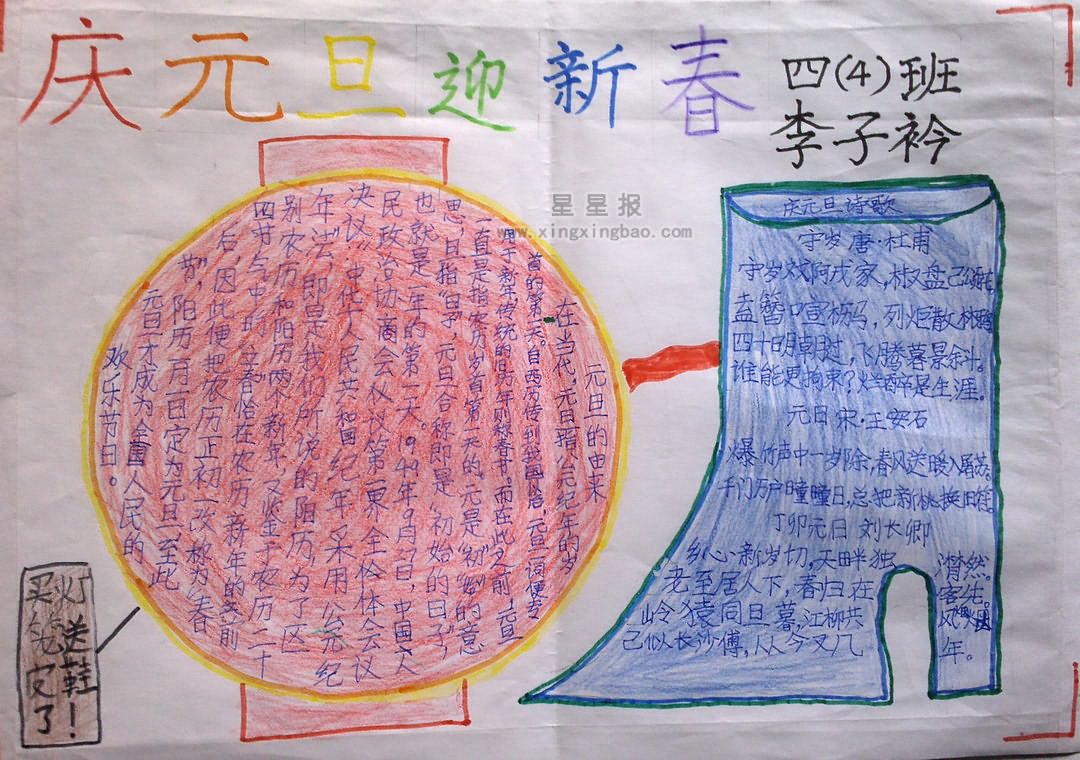 庆元旦迎新春
四(4)班
李子衿
星星报
www.xingxingbao.com
元旦的由来
在当代,元旦指公元纪年的岁
首的第一天。自西历传到我国以后,元旦一词便专
用于新年,传统的旧历年则称春节。而在此之前,元旦
一直是指农历岁首第一天的。元是“初”“始”的意
思,旦指“日子”,元旦合称即是“初始的日子”,
也就是一年的第一天。1949年9月27日,中国人
民政治协商会议议第一届全体会议
决议》中华人民共和国纪年采用公元纪
年“法”,即是我们所说的阳历,为了区
别农历和阳历两个新年,又鉴于农历二十
四节气中的“立春”恰在农历新年的前
后,因此便把农历正初一改称为“春
节”,阳历一月一日定为元旦,至此
元旦才成为全国人民的
欢乐节日。
庆元旦诗歌
守岁 唐·杜甫
守岁戏阿戎家,椒盘已颂
盍簪喧枥马,列炬散林鸦
四十明朝过,飞腾暮景斜。
谁能更拘束?烂醉是生涯。
元日 宋·王安石
爆竹声中一岁除,春风送暖入屠苏。
千门万户曈曈日,总把新桃换旧符
丁卯元日 刘长卿
乡心新岁切,天畔独潸然。
老至居人下,春归在客先。
岭猿同旦暮,江柳共风烟
已似长沙傅,从今又几年。
买火灯
笼送鞋!
又了